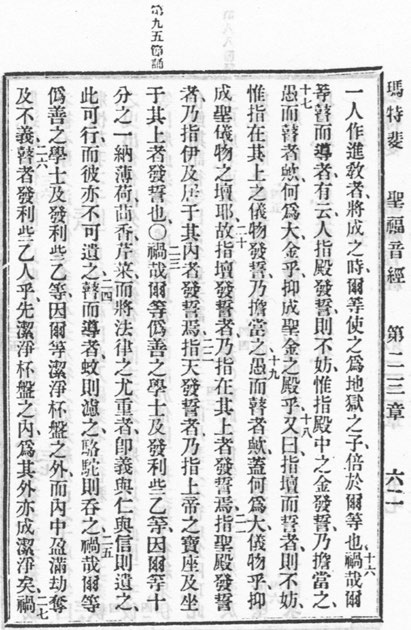 第九五節誦
瑪特斐 聖福音經 第二三章 六二
一人作進教者、將成之時、爾等使之爲地獄之子、倍於爾等也、十六禍哉爾
等瞽而導者、有云、人指殿發誓、則不妨、惟指殿中之金發誓、乃擔當之、
十七愚而瞽者歟、何爲大、金乎、抑成聖金之殿乎、十八又曰、指壇而誓者、則不妨、
惟指在其上之儀物發誓、乃擔當之、十九愚而瞽者歟、蓋何爲大、儀物乎、抑
成聖儀物之壇耶、二十故指壇發誓者、乃指在其上者發誓焉、二一指聖殿發誓
者、乃指伊及居于其內者發誓焉、二二指天發誓者、乃指上帝之寶座及坐
于其上者發誓也〇二三禍哉爾等僞善之學士及發利些乙等、因爾等十
分之一納薄荷茴香芹菜、而將法律之尤重者、卽義與仁與信則遺之、
此可行、而彼亦不可遺之、二四瞽而導者、蚊則濾之、駱駝則吞之、二五禍哉爾等
僞善之學士及發利些乙等、因爾等潔淨杯盤之外、而內中盈滿劫奪
及不義、二六瞽者發利些乙人乎、先潔淨杯盤之內、爲其外亦成潔淨矣、二七禍